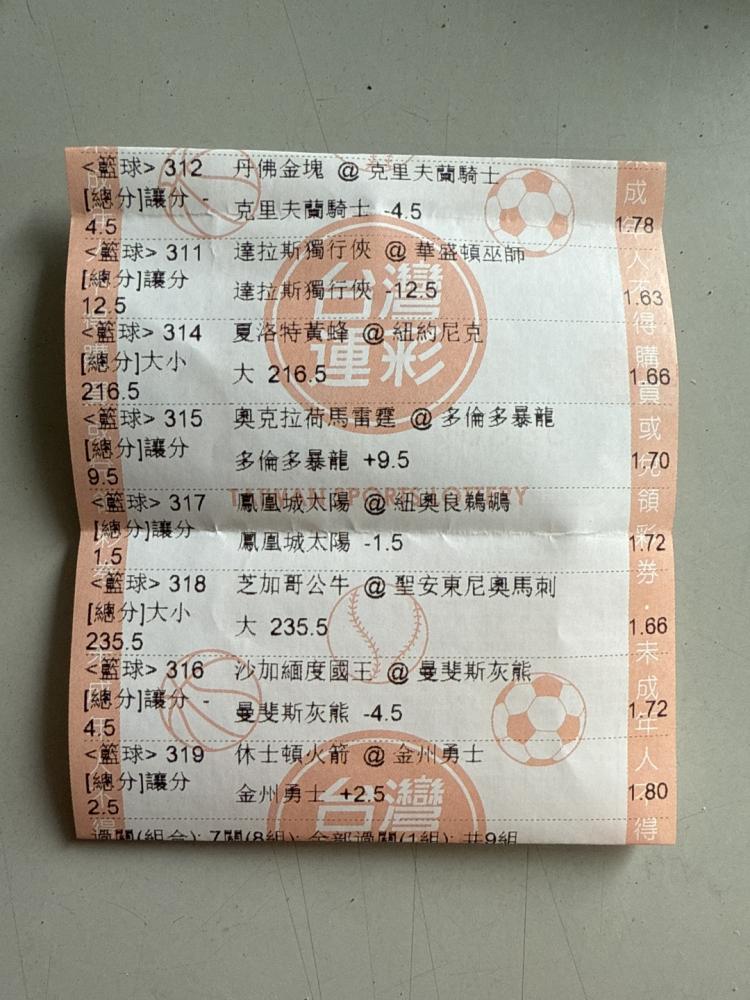 <籃球> 312 丹佛金塊 @ 克里夫蘭騎士
[總分]讓分 - 克里夫蘭騎士 -4.5
4.5 1.78
<籃球> 311 達拉斯獨行俠 @ 華盛頓巫師
[總分]讓分 達拉斯獨行俠 -12.5
12.5 1.63
<籃球> 314 夏洛特黃蜂 @ 紐約尼克
[總分]大小 大 216.5
216.5 1.66
<籃球> 315 奧克拉荷馬雷霆 @ 多倫多暴龍
[總分]讓分 多倫多暴龍 +9.5
9.5 1.70
<籃球> 317 鳳凰城太陽 @ 紐奧良鵜鶘
[總分]讓分 鳳凰城太陽 -1.5
1.5 1.72
<籃球> 318 芝加哥公牛 @ 聖安東尼奧馬刺
[總分]大小 大 235.5
235.5 1.66
<籃球> 316 沙加緬度國王 @ 曼斐斯灰熊
[總分]讓分 - 曼斐斯灰熊 -4.5
4.5 1.72
<籃球> 319 休士頓火箭 @ 金州勇士
[總分]讓分 金州勇士 +2.5
2.5 1.80
過關(組合): 7關(8組); 全部過關(1組); 共9組
台灣
運彩
TAIWAN SPORTS LOTTERY
台灣
成年人不得購買或兌領彩券·未成年人不得